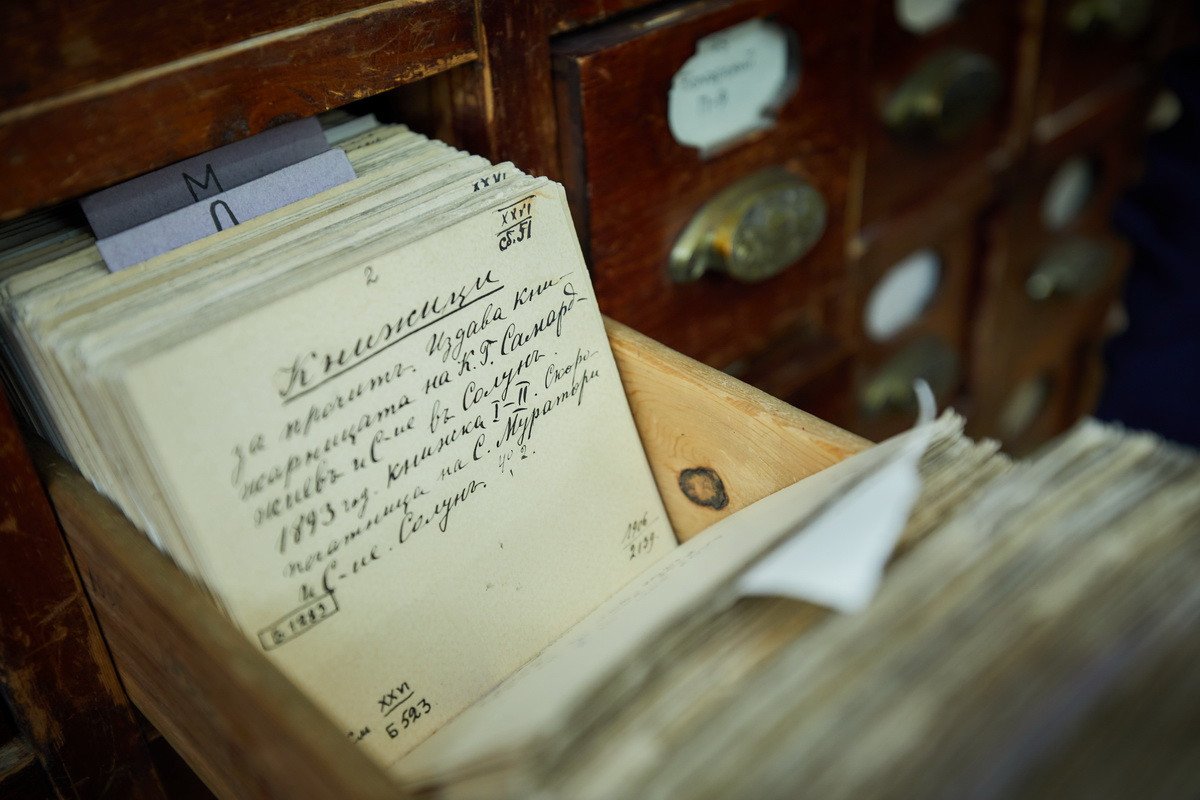 М
Л
XXVI
2
XXVI
Книжици
за прочитъ. Издава кни-
жарницата на К. Г. Самард-
жиевъ и С-ие въ Солунъ.
1893 год. книжка I-II. Скоро-
печатница на С. Муратори
и С-ие. Солунъ.
1906
2139
См XXVI
Б 523.